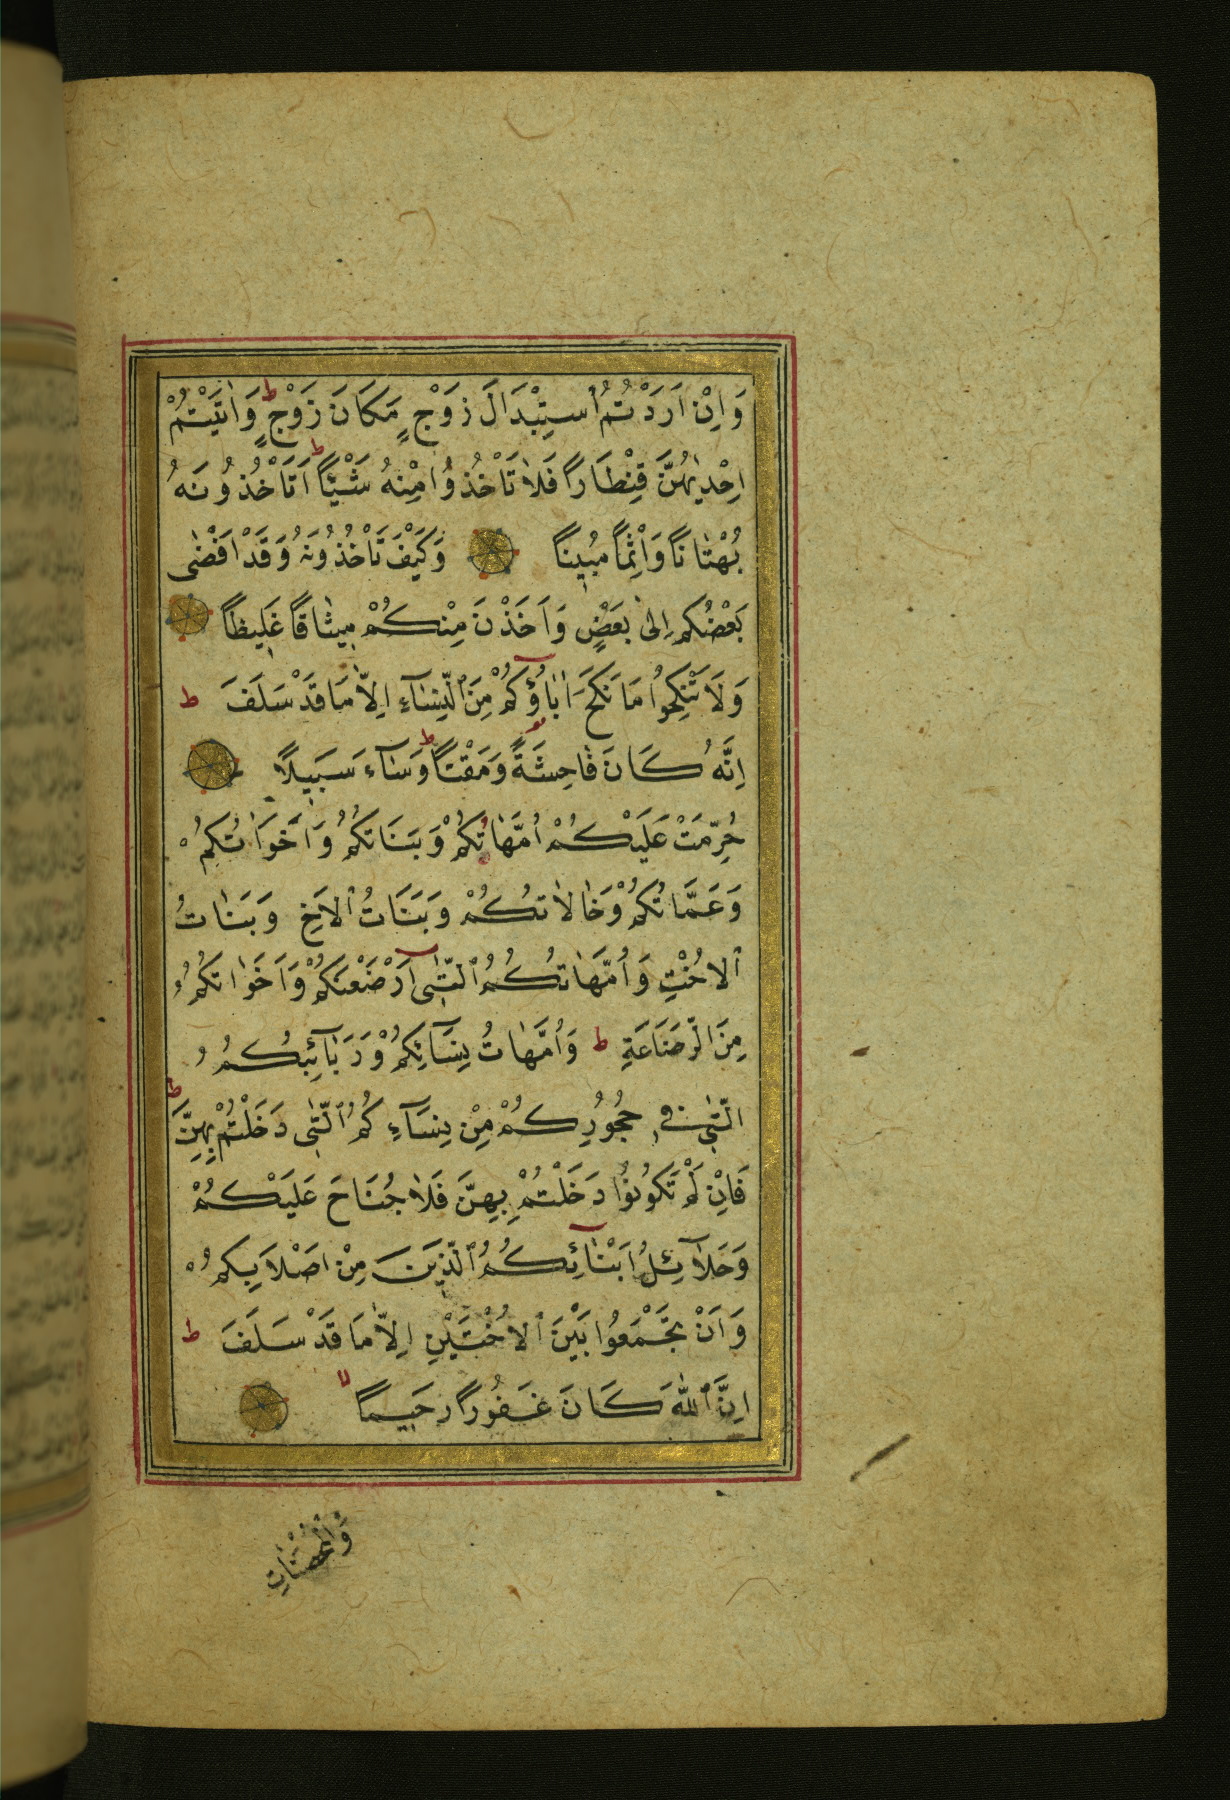 وَاِنْ اَرَدْتُمُ ٱسْتِبْدَالَ زَوْجٍ مَكَانَ زَوْجٍ ط وَاٰتَيْتُمْ
اِحْدٰيهُنَّ قِنْطَارًا فَلَا تَأْخُذُوا مِنْهُ شَيْئًا ط اَتَأْخُذُونَهُ
بُهْتَانًا وَاِثْمًا مُبِينًا وَكَيْفَ تَأْخُذُونَهُ وَقَدْ اَفْضٰى
بَعْضُكُمْ اِلٰى بَعْضٍ وَاَخَذْنَ مِنْكُمْ مِيثَاقًا غَلِيظًا
وَلَا تَنْكِحُوا مَا نَكَحَ اٰبَاؤُكُمْ مِنَ ٱلنِّسَآءِ اِلَّا مَا قَدْ سَلَفَ ط
اِنَّهُ كَانَ فَاحِشَةً وَمَقْتًا ط وَسَآءَ سَبِيلًا
حُرِّمَتْ عَلَيْكُمْ اُمَّهَاتُكُمْ وَبَنَاتُكُمْ وَاَخَوَاتُكُمْ
وَعَمَّاتُكُمْ وَخَالَاتُكُمْ وَبَنَاتُ ٱلْاَخِ وَبَنَاتُ
ٱلْاُخْتِ وَاُمَّهَاتُكُمُ ٱلّٰتٖى اَرْضَعْنَكُمْ وَاَخَوَاتُكُمْ
مِنَ الرَّضَاعَةِ ط وَاُمَّهَاتُ نِسَآئِكُمْ وَرَبَآئِبُكُمُ
الّٰتٖى فٖى حُجُورِكُمْ مِنْ نِسَآءِكُمُ ٱلّٰتٖى دَخَلْتُمْ بِهِنَّ ط
فَاِنْ لَمْ تَكُونُوا دَخَلْتُمْ بِهِنَّ فَلَا جُنَاحَ عَلَيْكُمْ
وَحَلَآئِلُ اَبْنَآئِكُمُ ٱلَّذِينَ مِنْ اَصْلَابِكُمْ
وَاَنْ تَجْمَعُوا بَيْنَ ٱلْاُخْتَيْنِ اِلَّا مَا قَدْ سَلَفَ ط
اِنَّ ٱللّٰهَ كَانَ غَفُورًا رَحِيمًا لا
وَالْمُحْصَنَاتِ